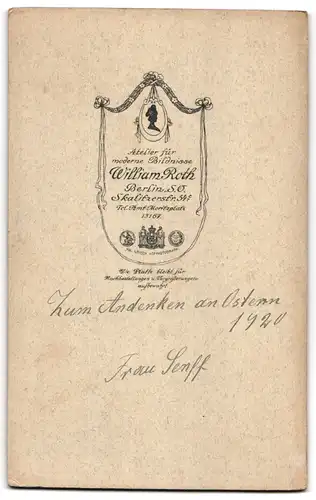 Atelier für
moderne Bildnisse
William Roth
Berlin, S.O.
Skalitzerstr. 54ᵃ
Tel. Amt Moritzplatz
13167
Die Platte bleibt für
Nachbestellungen u. Vergrößerungen
aufbewahrt
Zum Andenken an Ostern
1920
Frau Senff